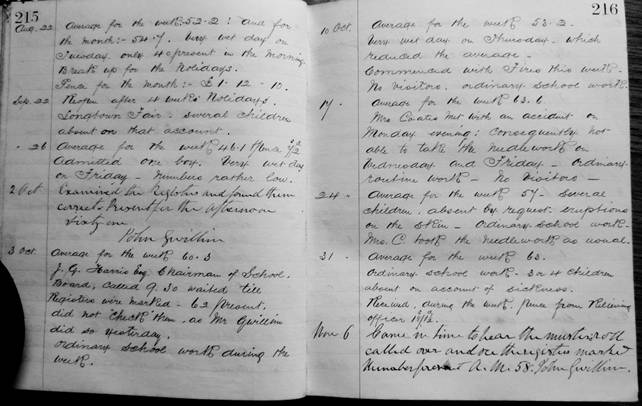 215
Aug. 22 Average for the week 52.2: and for
the month:- 54.7. Very wet day on
Tuesday only 4 present in the morning
Break up for the Holidays.
Pence for the month:- £1. 12. 10.
Sep. 22 Reopen after 4 weeks Holidays.
Longtown Fair: several children
absent on that account.
" 26 Average for the week 46.1 Pence
Admitted one boy. Very wet day
on Friday - numbers rather low.
2 Oct Examined the Registers and found them
correct. Present for the afternoon
Sixty one
John Gwillim
3 Oct. Average for the week 60.3
J. G. Harris Esq. Chairman of School
Board, called 9.30 waited till
Registers were marked - 62 present.
did not check them, as Mr Gwillim
did so yesterday.
Ordinary school work during the
week.
216
10 Oct. Average for the week 53.2.
Very wet day on Thursday - which
reduced the average -
Commenced with Fires this week -
No Visitors, ordinary school work.
17 " Average for the week 63.6
Mrs Coates met with an accident on
Monday evening: Consequently not
able to take the Needlework on
Wednesday and Friday - ordinary
routine work - No Visitors -
24 " Average for the week 57 - Several
children, absent by request - eruptions
on the skin - Ordinary school work -
Mrs. C took the Needlework as usual.
31 - Average for the week 63.
Ordinary school work - 3 or 4 children
absent on account of sickness.
Received, during the week, pence from Relieving
officer
Nov 6 Came in time to hear the muster roll
called over and see the registers marked
Number present A.M. 58. John Gwillim